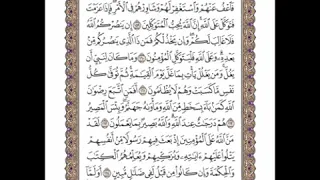 فَٱعْفُ عَنْهُمْ وَٱسْتَغْفِرْ لَهُمْ وَشَاوِرْهُمْ فِى ٱلْأَمْرِ فَإِذَا عَزَمْتَ
فَتَوَكَّلْ عَلَى ٱللَّهِ إِنَّ ٱللَّهَ يُحِبُّ ٱلْمُتَوَكِّلِينَ ۝ إِن يَنصُرْكُمُ ٱللَّهُ
فَلَا غَالِبَ لَكُمْ وَإِن يَخْذُلْكُمْ فَمَن ذَا ٱلَّذِى يَنصُرُكُم مِّنۢ
بَعْدِهِۦ وَعَلَى ٱللَّهِ فَلْيَتَوَكَّلِ ٱلْمُؤْمِنُونَ ۝ وَمَا كَانَ لِنَبِىٍّ أَن
يَغُلَّ وَمَن يَغْلُلْ يَأْتِ بِمَا غَلَّ يَوْمَ ٱلْقِيَـٰمَةِ ثُمَّ تُوَفَّىٰ كُلُّ
نَفْسٍ مَّا كَسَبَتْ وَهُمْ لَا يُظْلَمُونَ ۝ أَفَمَنِ ٱتَّبَعَ رِضْوَٰنَ
ٱللَّهِ كَمَنۢ بَآءَ بِسَخَطٍ مِّنَ ٱللَّهِ وَمَأْوَىٰهُ جَهَنَّمُ وَبِئْسَ ٱلْمَصِيرُ
۝ هُمْ دَرَجَـٰتٌ عِندَ ٱللَّهِ وَٱللَّهُ بَصِيرٌۢ بِمَا يَعْمَلُونَ ۝ لَقَدْ
مَنَّ ٱللَّهُ عَلَى ٱلْمُؤْمِنِينَ إِذْ بَعَثَ فِيهِمْ رَسُولًا مِّنْ أَنفُسِهِمْ
يَتْلُوا۟ عَلَيْهِمْ ءَايَـٰتِهِۦ وَيُزَكِّيهِمْ وَيُعَلِّمُهُمُ ٱلْكِتَـٰبَ
وَٱلْحِكْمَةَ وَإِن كَانُوا۟ مِن قَبْلُ لَفِى ضَلَـٰلٍ مُّبِينٍ ۝ أَوَلَمَّآ